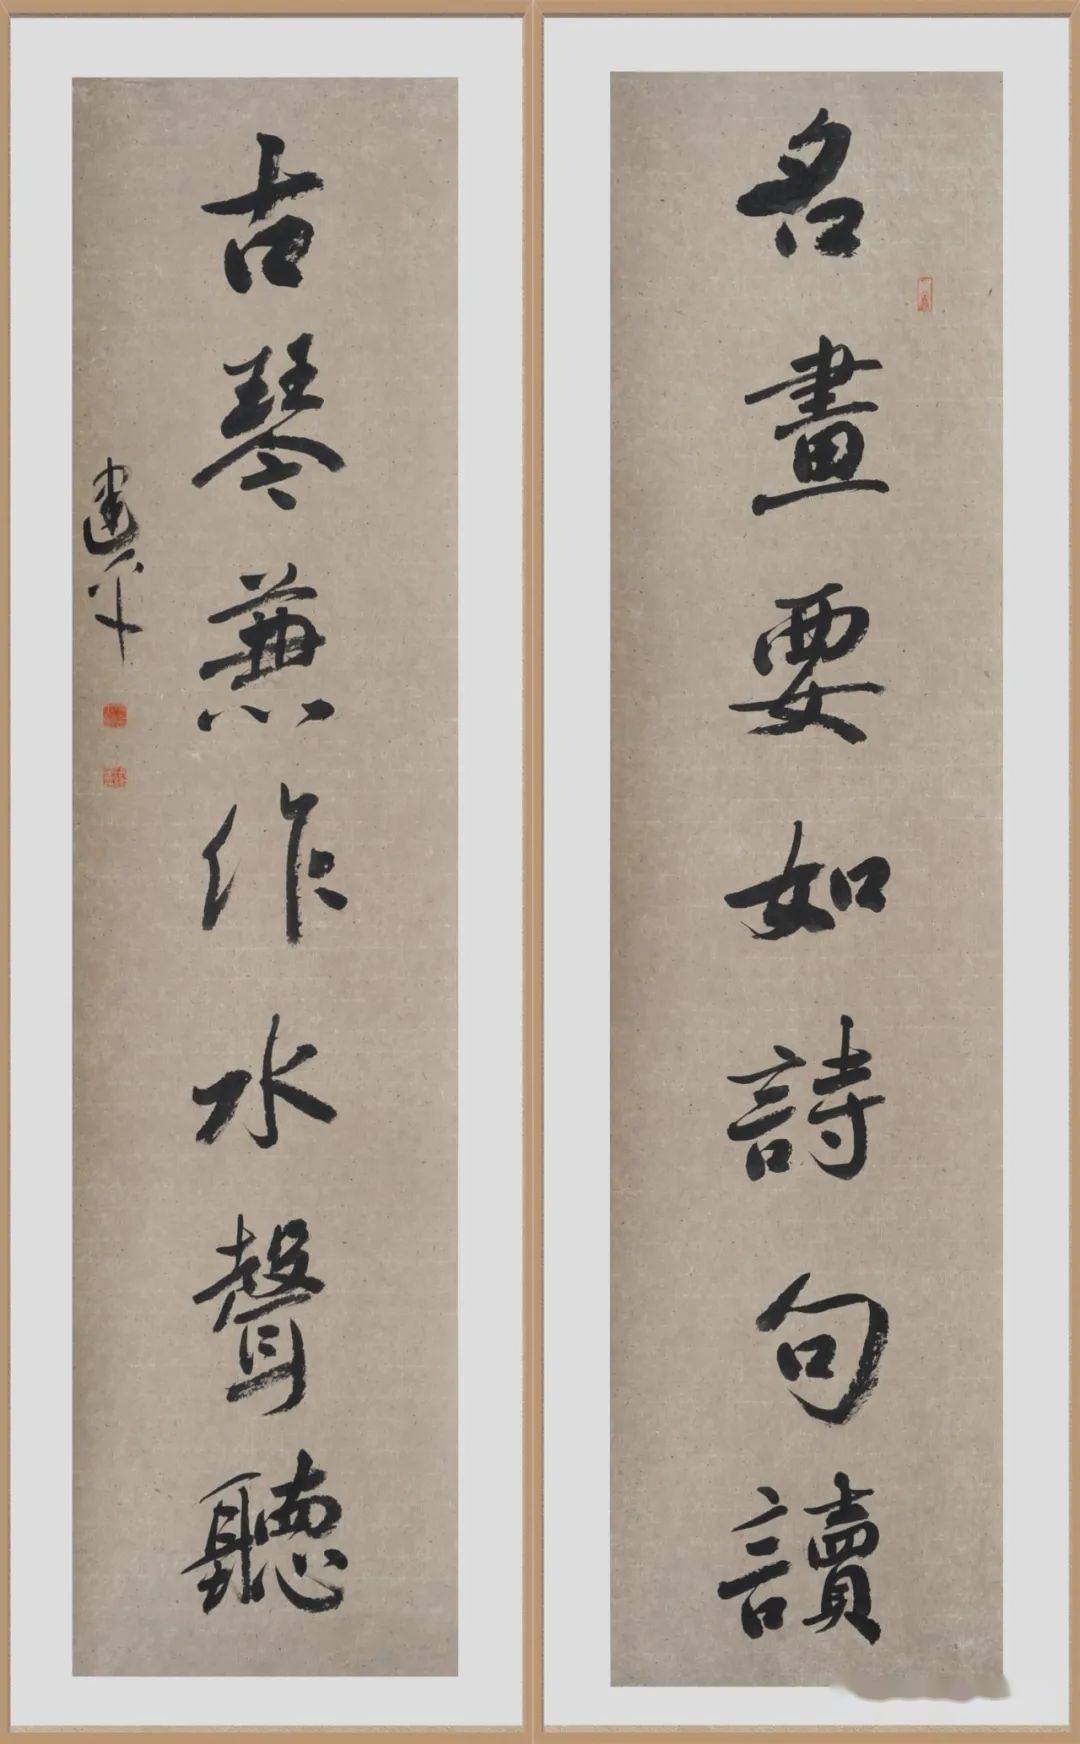 名畫要如詩句讀
古琴兼作水聲聽
建平